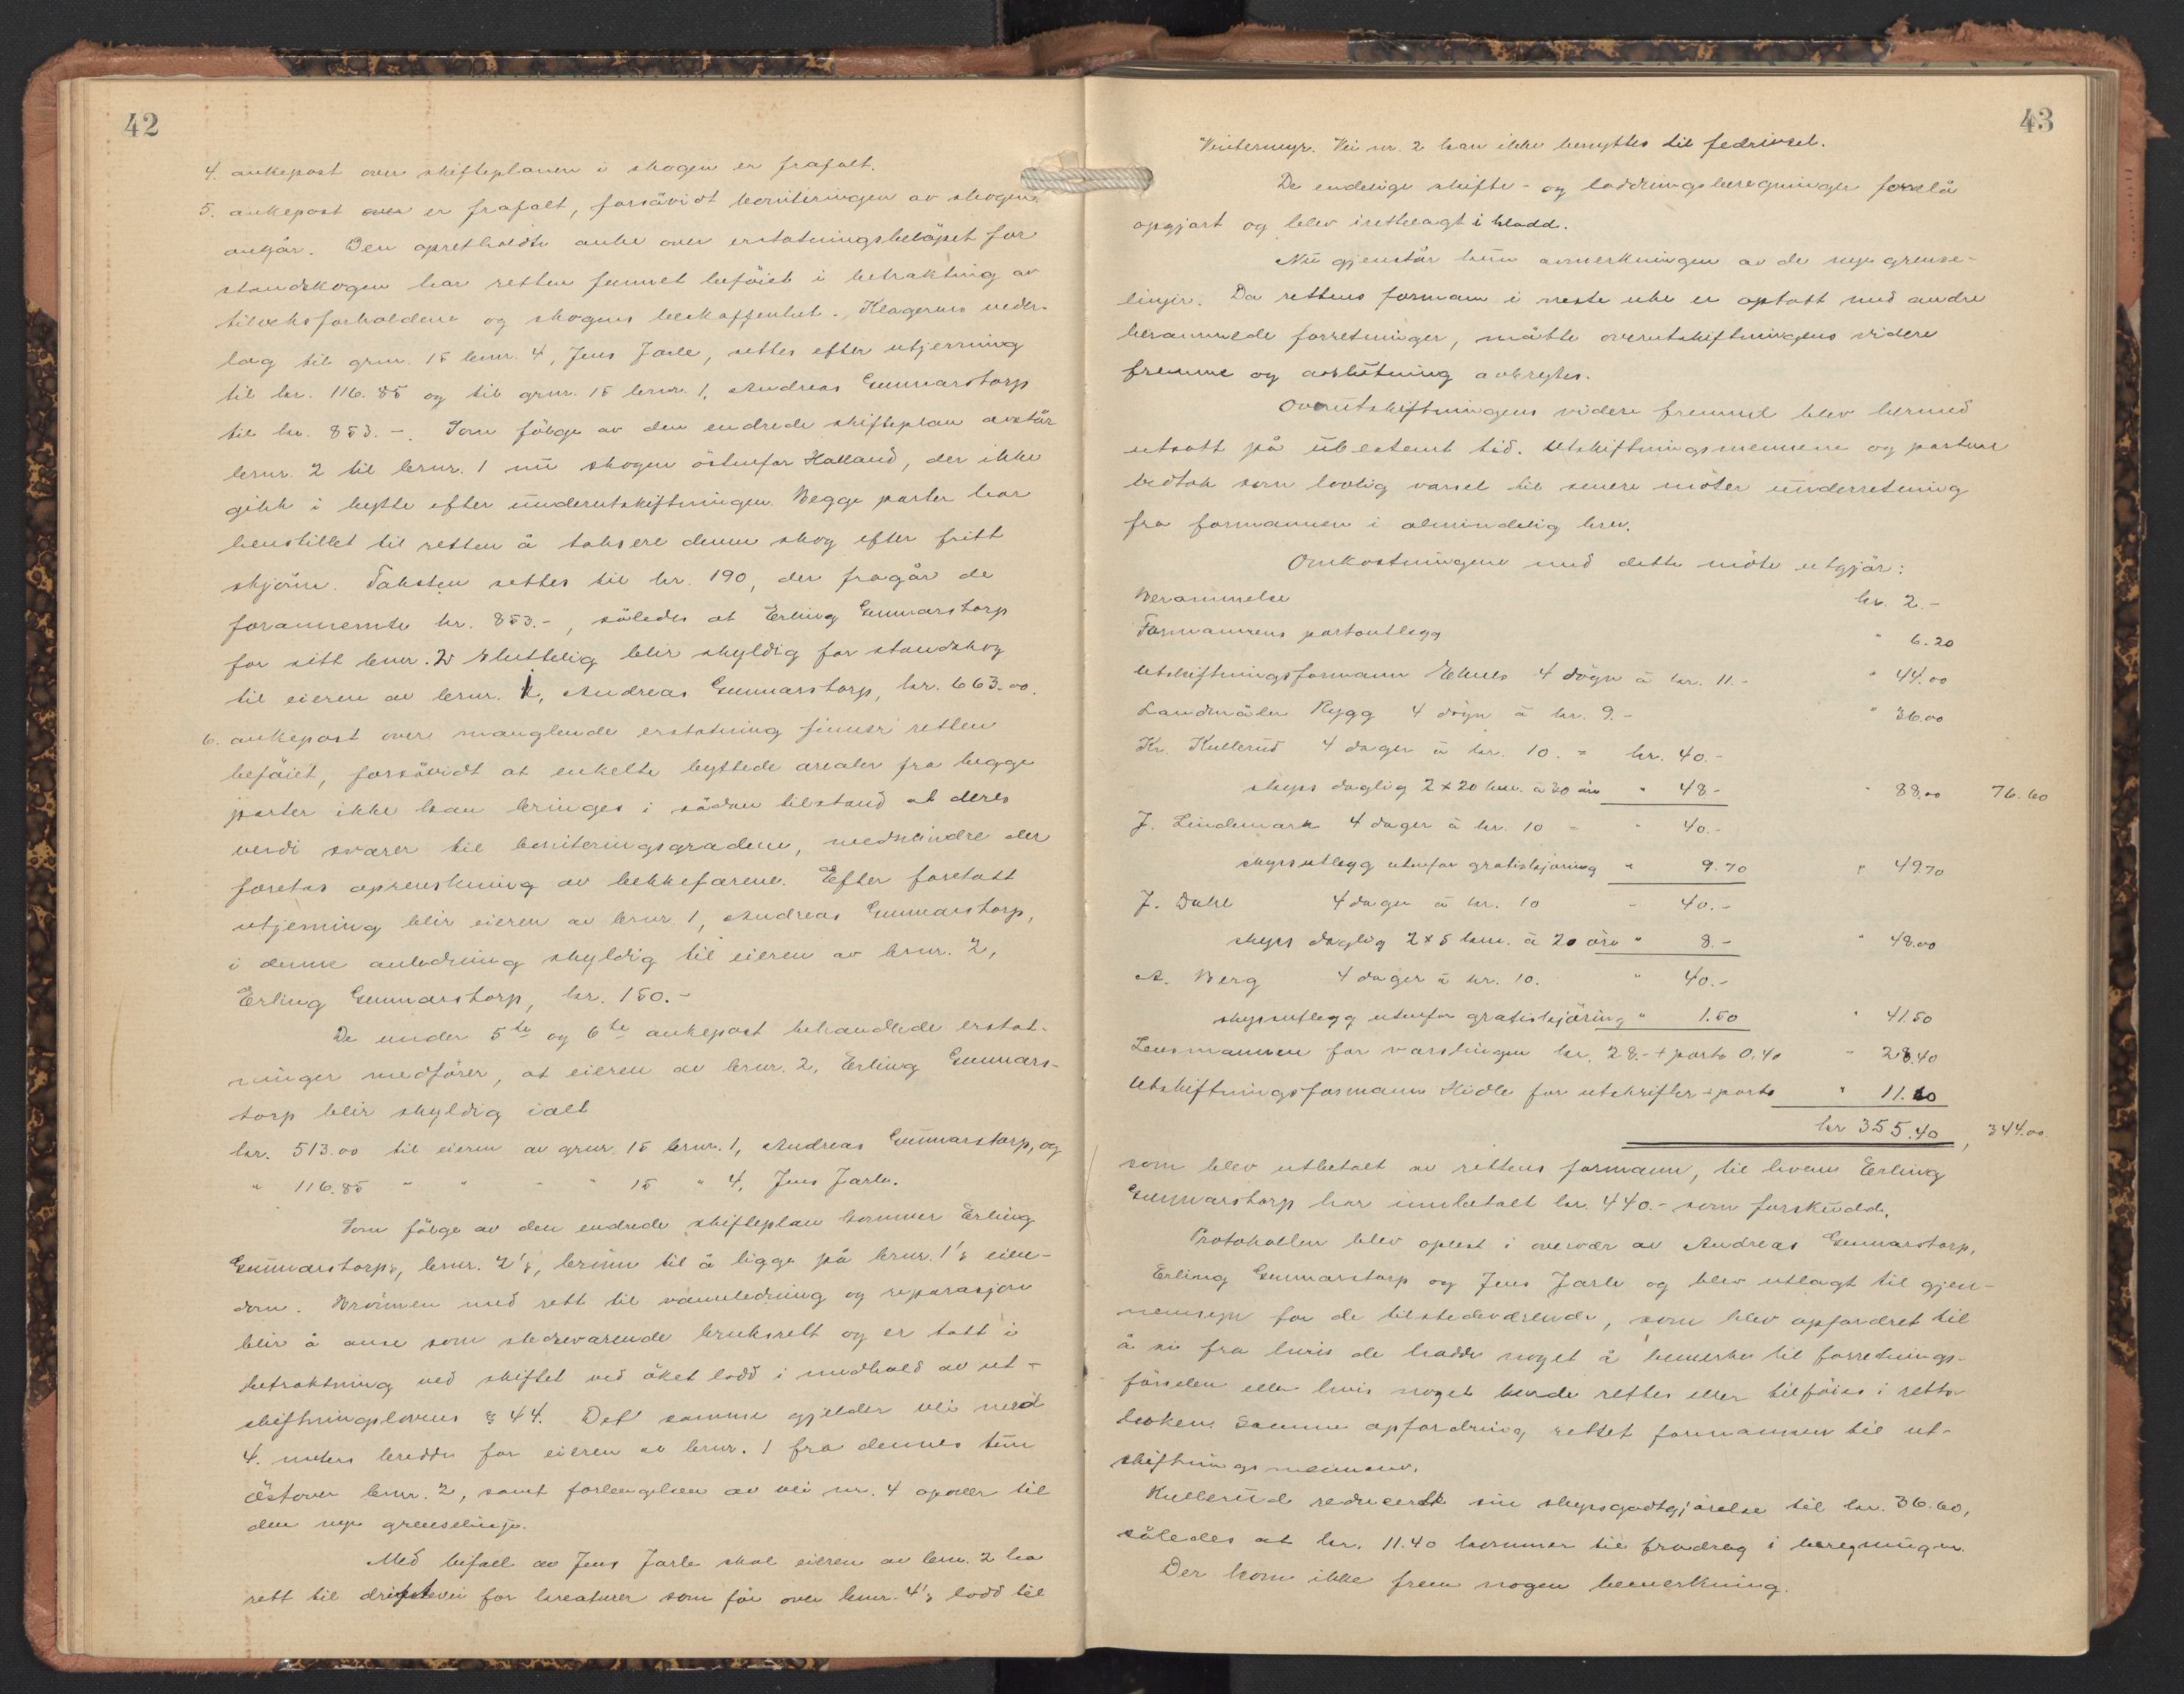 42
4. ankepost over skifteplanen i skogen er frafalt.
5. ankepost over er frafalt, forsåvidt boniteringen av skogen
angår. Den opretholdte anke over erstatningsbeløpet for
standskogen har retten funnet beføiet i betraktning av
tilvekstforholdene og skogens beskaffenhet. Klagerens veder-
lag til grnr. 15 brnr. 4, Jens Jarle, settes efter utjevning
til kr. 116.85 og til grnr. 15 brnr. 1, Andreas Gunnarstorp
til kr. 853.-. Som følge av den endrede skifteplan avstår
brnr. 2 til brnr. 1 nu skogen østenfor Halland, der ikke
gikk i bytte efter underutskiftningen. Begge parter har
henstillet til retten å taksere denne skog efter fritt
skjønn. Taksten settes til kr. 190, der fragår de
forannevnte kr. 853.-, således at Erling Gunnarstorp
for sitt brnr. 2 sluttelig blir skyldig for standskog
til eieren av brnr. 1, Andreas Gunnarstorp, kr. 663.00.
6. ankepost over manglende erstatning finner retten
beføiet, forsåvidt at enkelte byttede arealer fra begge
parter ikke kan bringes i sådan tilstand at deres
verdi svarer til boniteringsgradene, medmindre der
foretas oprenskning av bekkefarene. Efter foretatt
utjevning blir eieren av brnr 1, Andreas Gunnarstorp,
i denne anledning skyldig til eieren av brnr. 2,
Erling Gunnarstorp, kr. 150.-
De under 5te og 6te ankepost behandlede erstat-
ninger medfører, at eieren av brnr. 2, Erling Gunnars-
torp blir skyldig ialt
kr. 513.00 til eieren av grnr. 15 brnr. 1, Andreas Gunnarstorp, og
" 116.85 " " " " 15 " 4, Jens Jarle.
Som følge av den endrede skifteplan kommer Erling
Gunnarstorps, brnr. 2's, brønn til å ligge på brnr. 1's eien-
dom. Brønnen med rett til vannledning og reparasjon
blir å anse som stedsevarende bruksrett og er tatt i
betraktning ved skiftet ved øket lodd i medhold av ut-
skiftningslovens § 44. Det samme gjelder vei med
4. meters bredde for eieren av brnr. 1 fra dennes tun
østover brnr. 2, samt forlengelsen av vei nr. 4 opover til
den nye grenselinje.
Med bifall av Jens Jarle skal eieren av brnr. 2 ha
rett til driftevei for kreaturer som før over brnr. 4's lodd til
43
Vintermyr. Vei nr. 2 kan ikke benyttes til fedrivsel.
De endelige skifte- og loddningsberegninger forelå
opgjort og blev irettelagt i kladd.
Nu gjenstår kun avmerkningen av de nye grense-
linjer. Da rettens formann i neste uke er optatt med andre
berammede forretninger, måtte overutskiftningens videre
fremme og avslutning avbrytes.
Overutskiftningens videre fremme blev hermed
utsatt på ubestemt tid. Utskiftningsmennene og partene
vedtok som lovlig varsel til senere møter underretning
fra formannen i almindelig brev.
Omkostningene med dette møte utgjør:
Berammelse kr. 2.-
Formannens portoutlegg " 6.20
Utskiftningsformann 4 døgn à kr. 11.- " 44.00
Landmåler Rygg 4 døgn à kr. 9.- " 36.00
Kr. Kullerud 4 dager à kr. 10. = kr. 40.-
skyss daglig 2 x 20 km. à 30 øre " 48.- " 88.00 76.60
J. Lindemark 4 dager à kr. 10 = " 40.-
skyssutlegg utenfor gratiskjøring " 9.70 " 49.70
J. Dahl 4 dager à kr. 10 - 40.-
skyss daglig 2 x 5 km. à 20 øre " 8.- " 48.00
A. Berg 4 dager à kr. 10. " 40.-
skyssutlegg utenfor gratiskjøring " 1.50 " 41.50
Lensmannen for varslingen kr. 28.- + porto 0.40 " 28.40
Utskiftningsformann Hidle for utskrifter + porto " 11.60
kr 355.40, 344.00
som blev utbetalt av rettens formann, til hvem Erling
Gunnarstorp har innbetalt kr. 440.- som forskudd.
Protokollen blev oplest i overvær av Andreas Gunnarstorp,
Erling Gunnarstorp og Jens Jarle og blev utlagt til gjen-
nemsyn for de tilstedeværende, som blev opfordret til
å si fra hvis de hadde noget å bemerke til forretnings-
førselen eller hvis noget burde rettes eller tilføies i retts-
boken. Samme opfordring rettet formannen til ut-
skiftningsmennene.
Kullerud reducerte sin skyssgodtgjørelse til kr. 36.60,
således at kr. 11.40 kommer til fradrag i beregningen.
Der kom ikke frem nogen bemerkning.